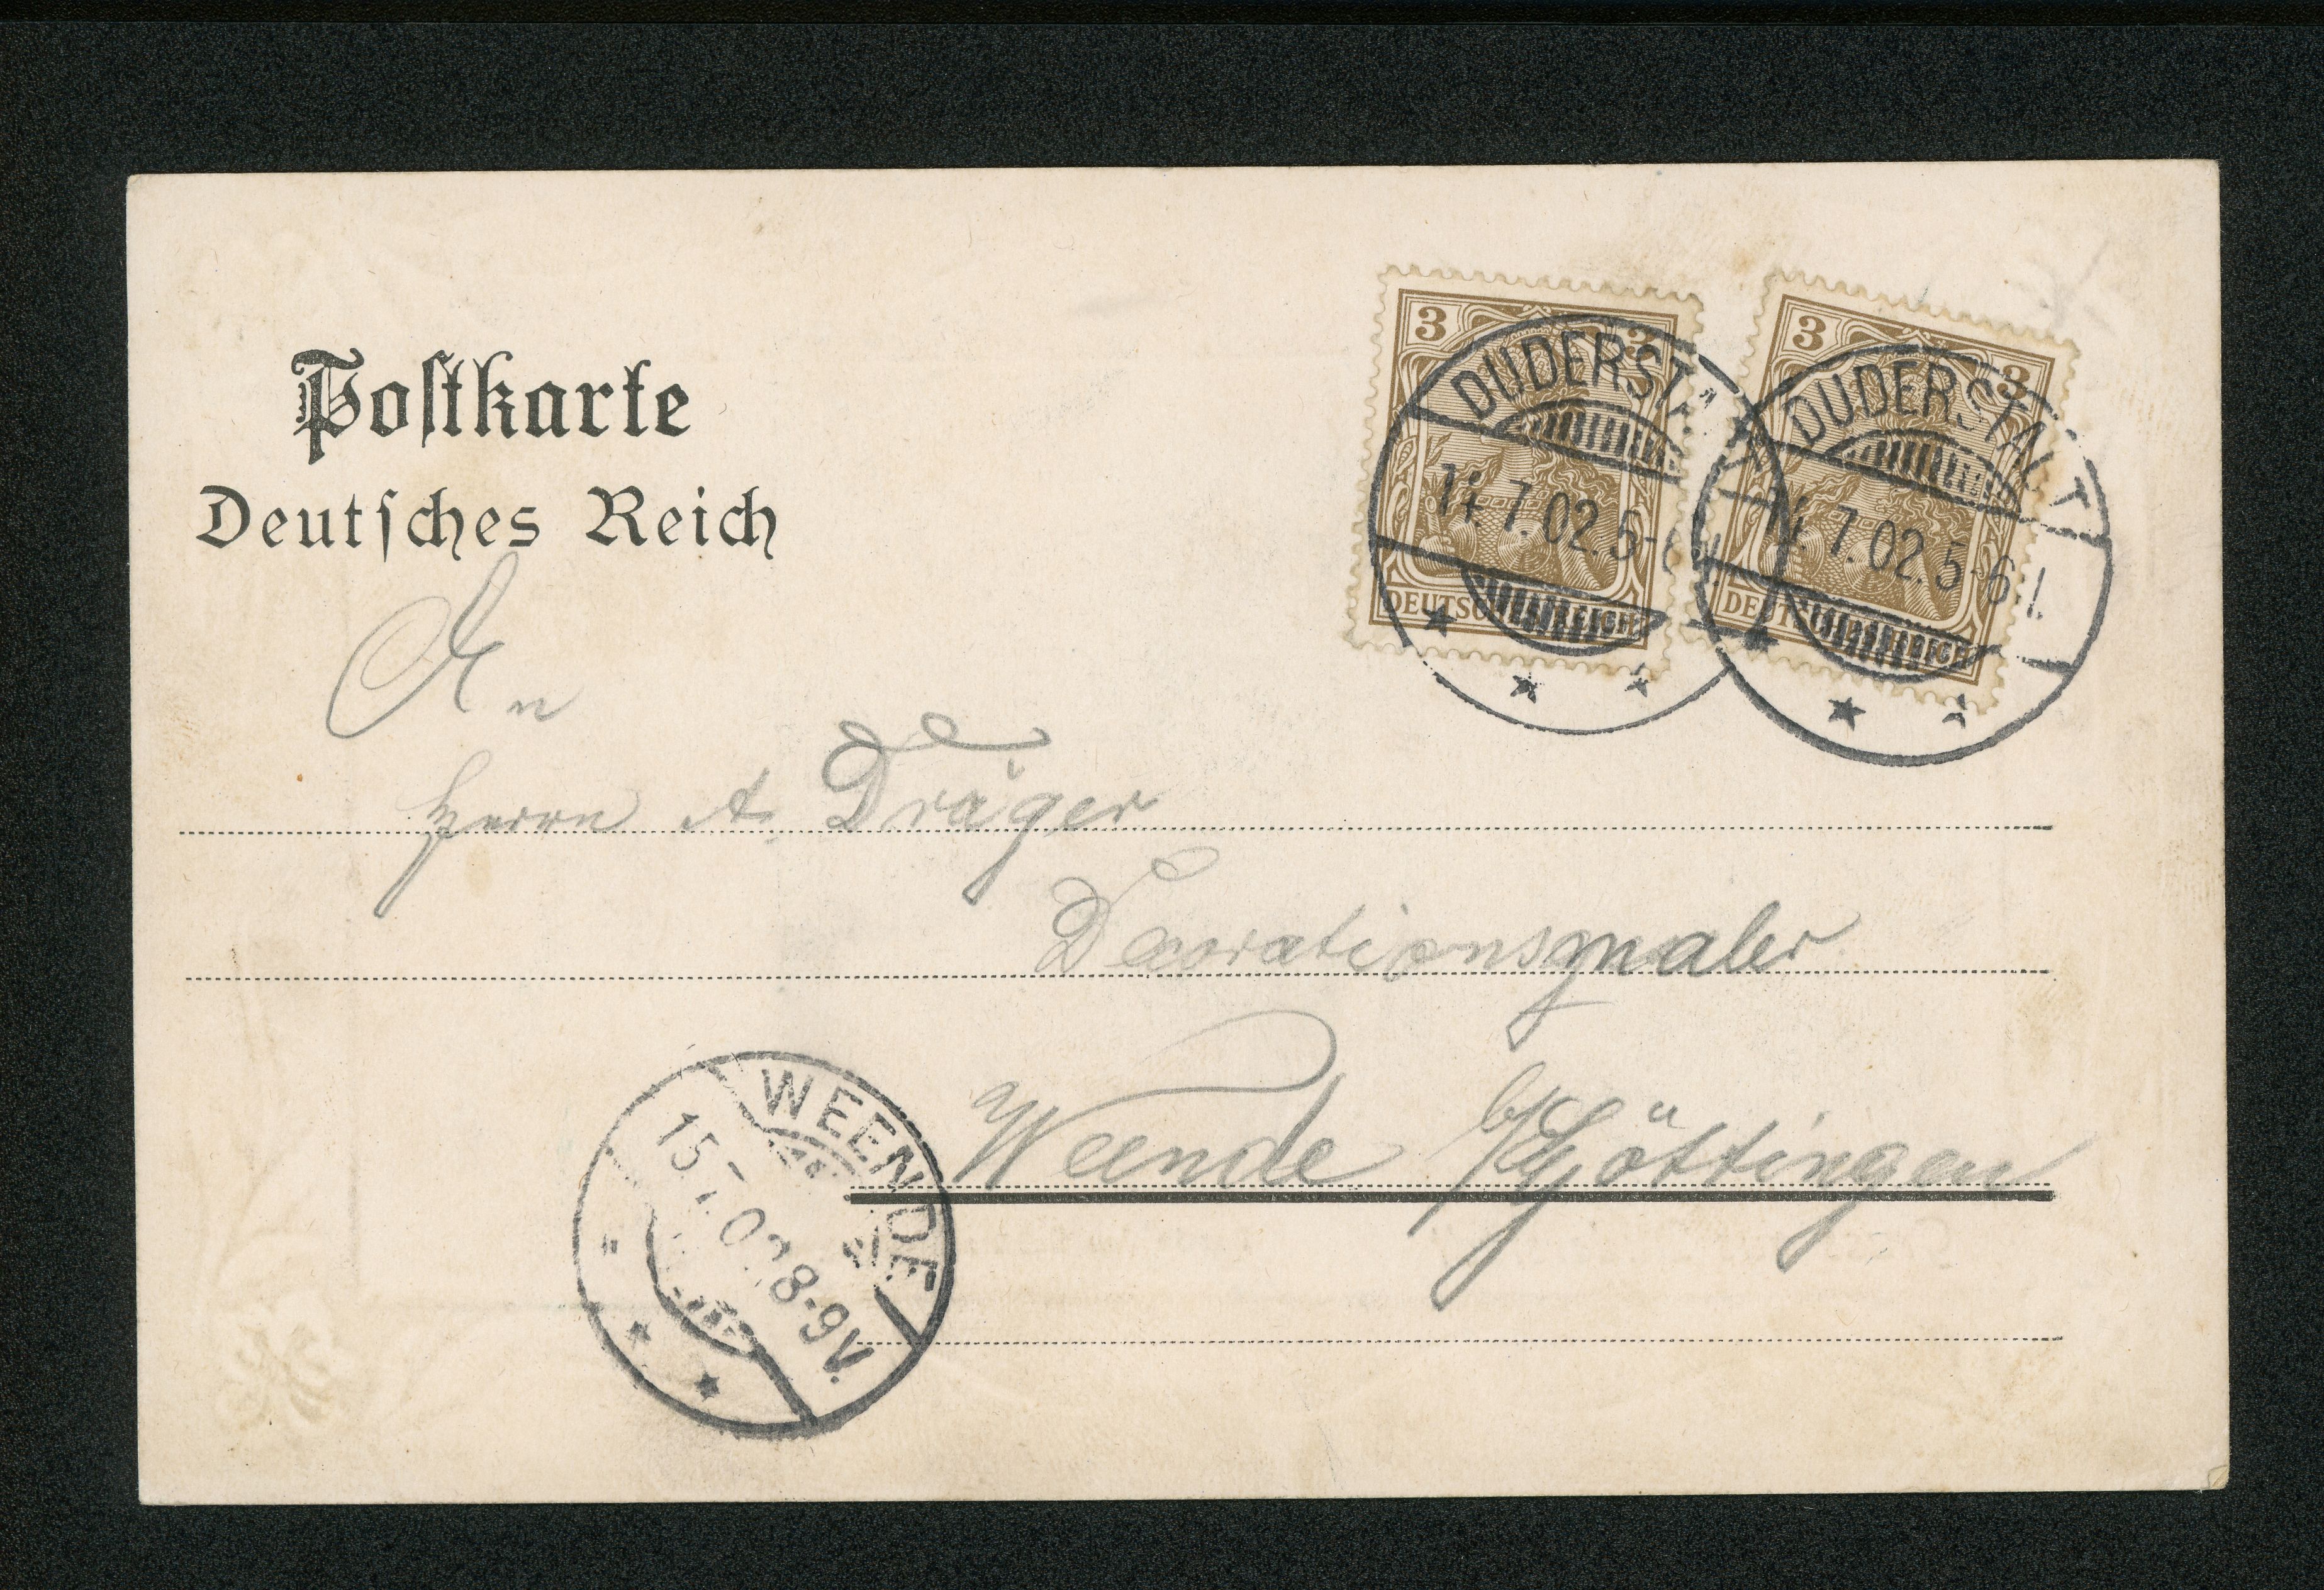 Postkarte
Deutsches Reich
3 3
DEUTSCHES REICH
DUDERSTA
14.7.02.5-6
3 3
DEUTSCHES REICH
DUDERSTADT
14.7.02.5-6
An
Herrn A. Dräger
Decorationsmaler
Weende b/Göttingen
WEENDE
15.7.02.8-9V.